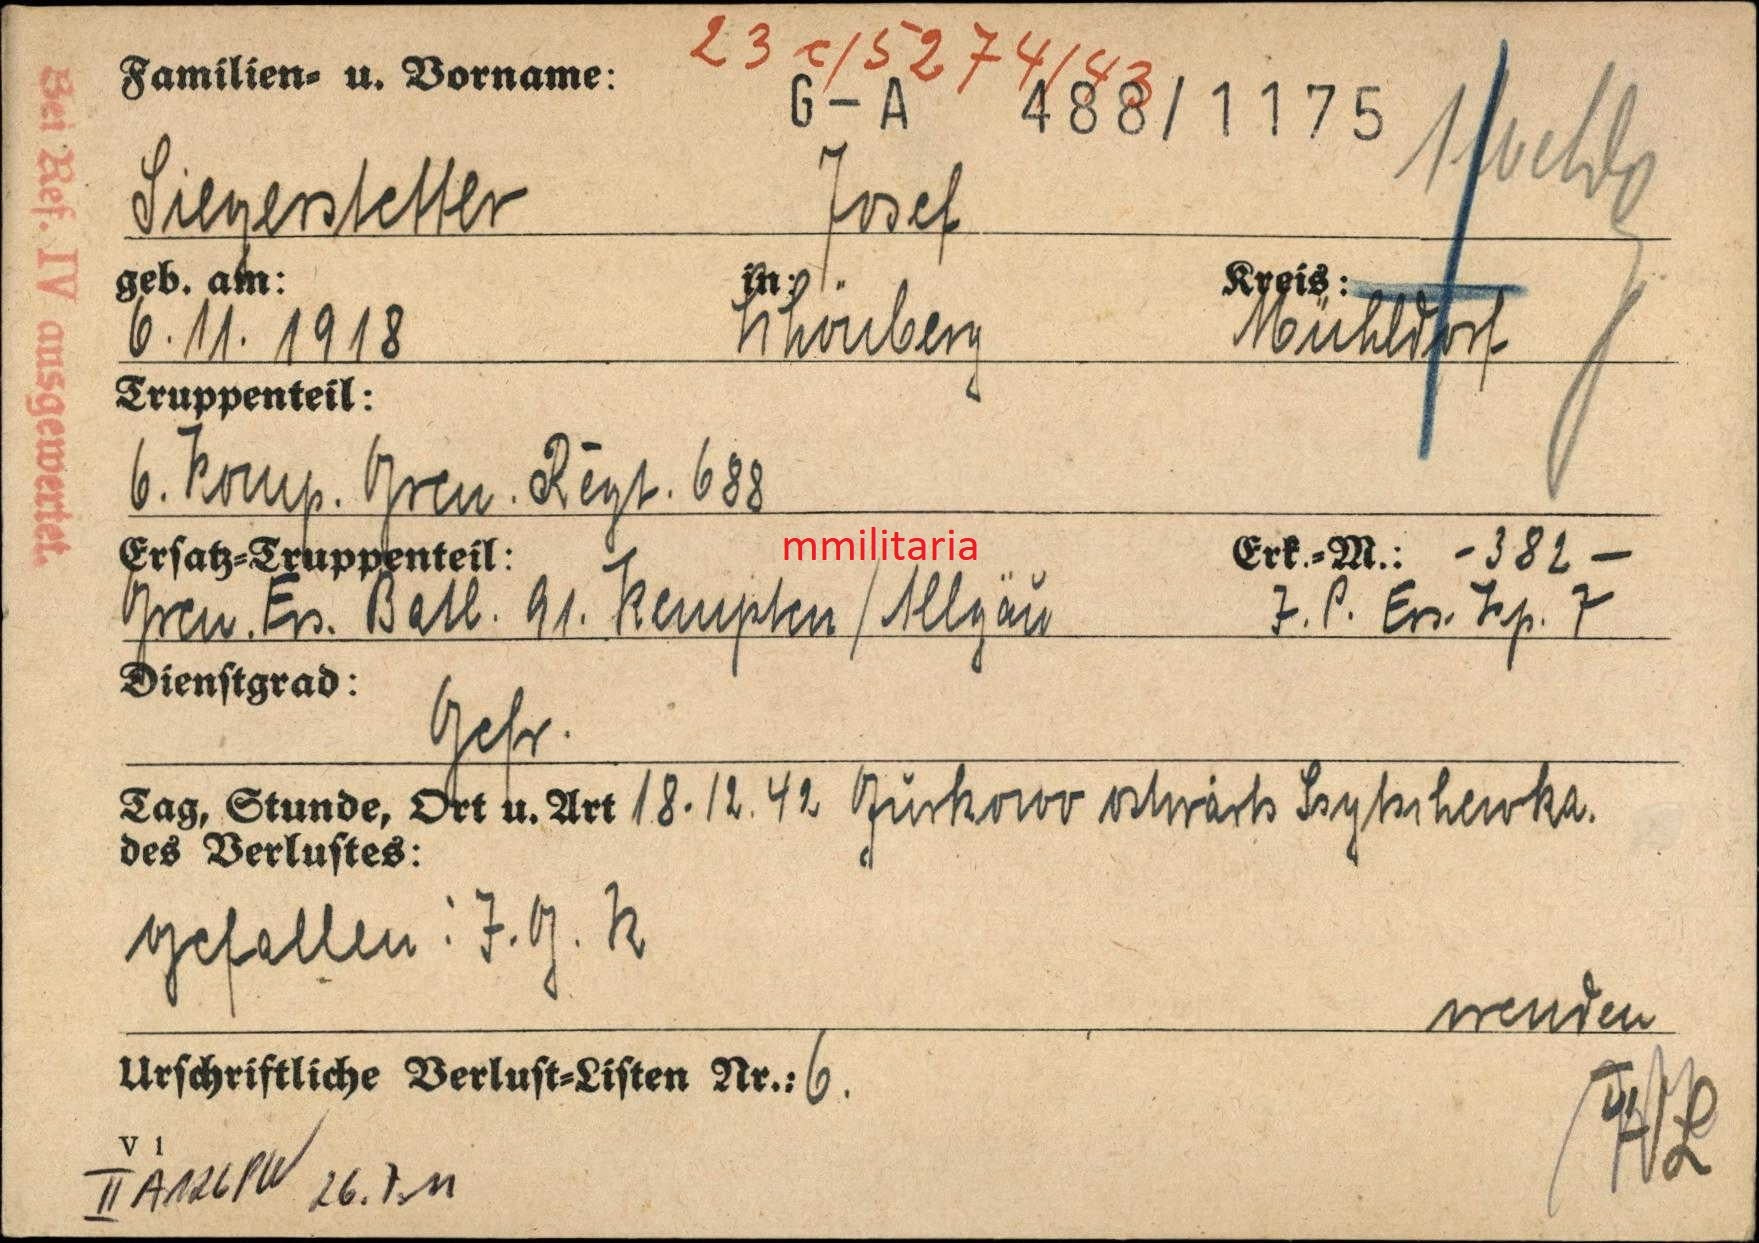 23 c/5274/43
Familien- u. Vorname:
G-A 488/1175
Siegerstetter Josef
geb. am: in: Kreis:
6.11.1918 Schönberg Mühldorf
Truppenteil:
6. Komp. Gren. Regt. 688
mmilitaria
Ersatz-Truppenteil: Erk.-M.: -382-
Gren. Ers. Batl. 91. Kempten/Allgäu J. P. Ers. Kp. 7
Dienstgrad:
Gefr.
Tag, Stunde, Ort u. Art 18.12.42 Gurkowo ostwärts Ssytschewka.
des Verlustes:
gefallen: J. G. K
wenden
Urschriftliche Verlust-Listen Nr.: 6.
V 1
II A
Bei Ref. IV ausgewertet.